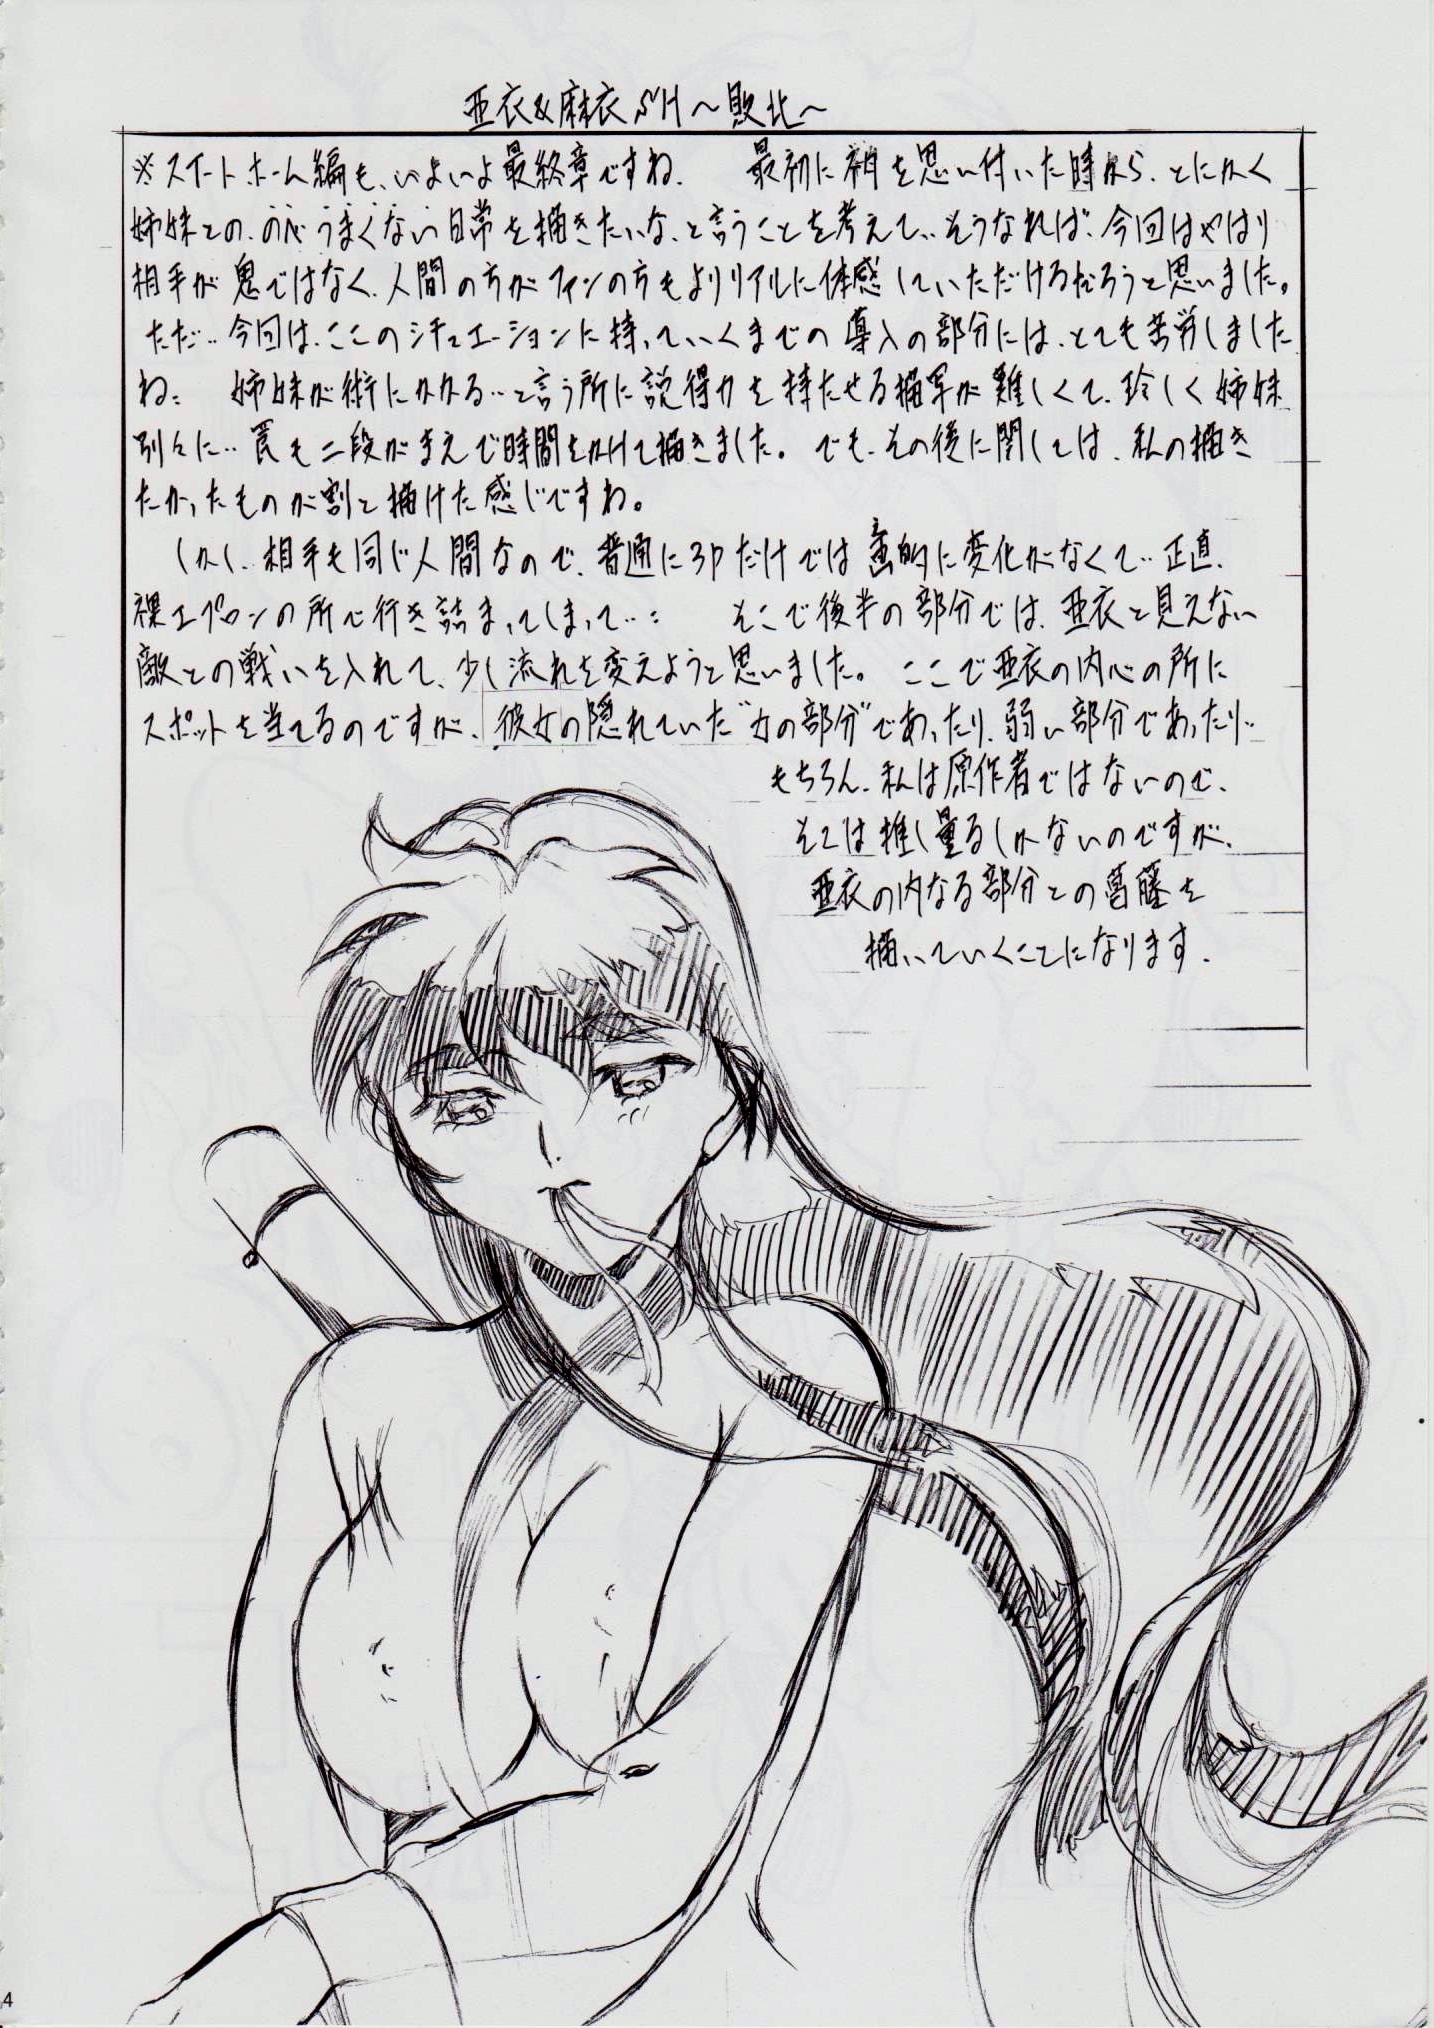 亜衣&麻衣SH～敗北～
※スイートホーム編も、いよいよ最終章ですね. 最初に相を思い付いた時から、とにかく
姉妹との、のうまくない日常を描きたいな、と言うことを考えて‥そうなれば、今回はやはり
相手が鬼ではなく、人間の方がファンの方もよりリアルに体感していただけるだろうと思いました。
ただ‥今回は、ここのシチュエーションに持っていくまでの導入の部分には、とても苦労しました
ね: 姉妹が術にかかる‥と言う所に説得力を持たせる描写が難しくて、珍しく姉妹
別々に‥罠も二段がまえで時間をかけて描きました。でも、その後に関しては、私の描き
たかったものが割と描けた感じですね。
しかし、相手も同じ人間なので、普通に3Pだけでは画的に変化がなくて‥正直、
裸エプロンの所で行き詰まってしまって‥: そこで後半の部分では、亜衣と見えない
敵との戦いを入れて、少し流れを変えようと思いました。ここで亜衣の内心の所に
スポットを当てるのですが、彼女の隠れていた"女の部分"であったり、弱い部分であったり‥
もちろん、私は原作者ではないので、
そこは推し量るしかないのですが、
亜衣の内なる部分との葛藤を
描いていくことになります.
4